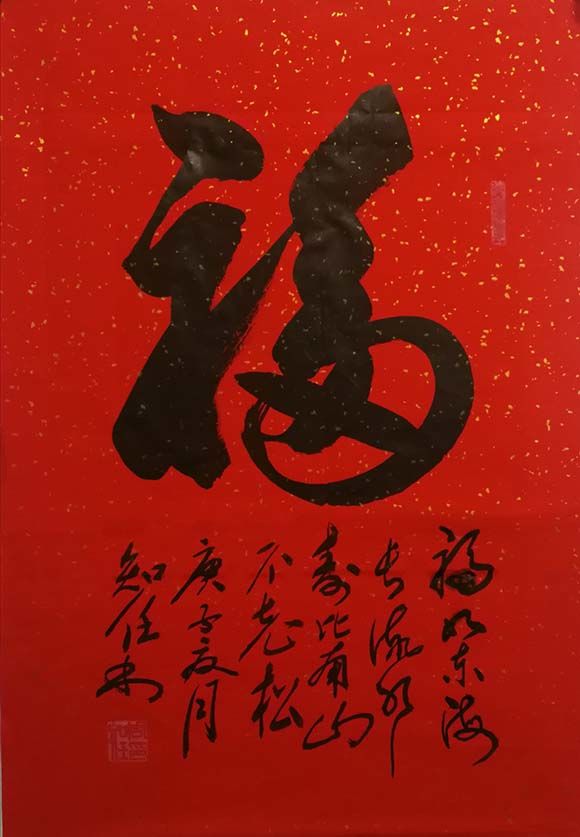 福
福如东海
长流水
寿比南山
不老松
庚子夏月
知任书